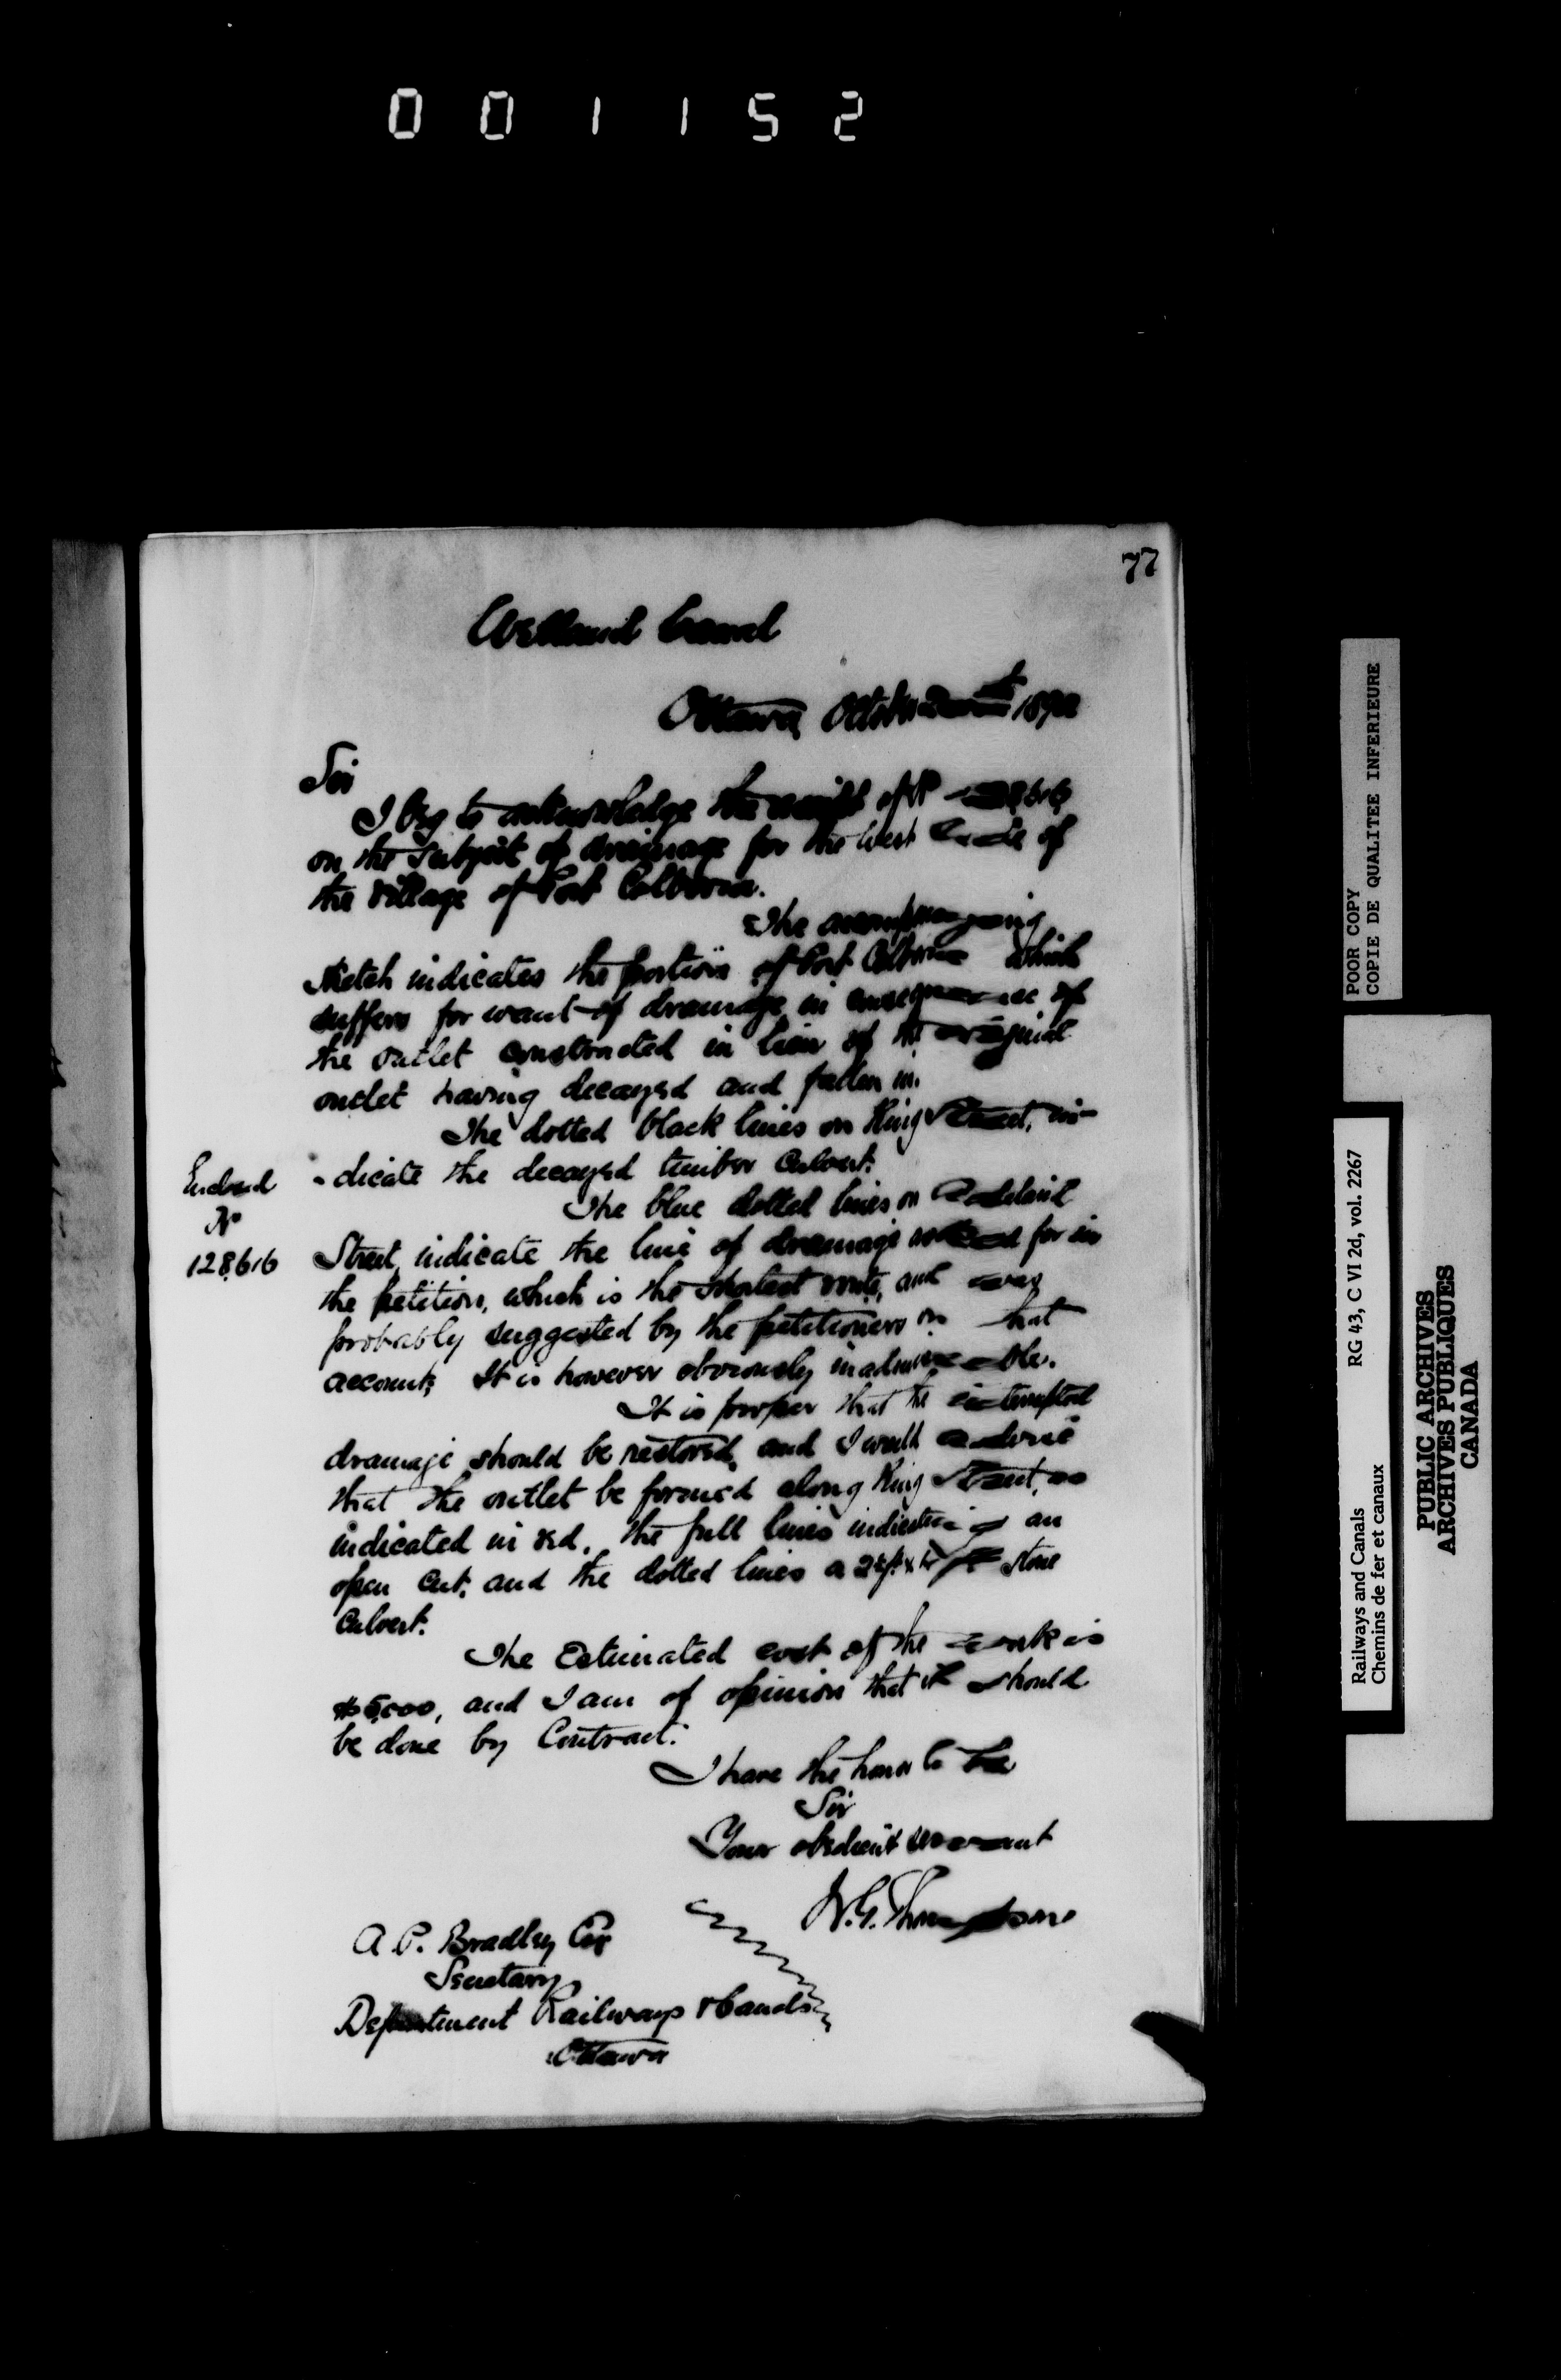 001152
77
Welland Canal
Ottawa, October 1892
Sir
I beg to acknowledge the receipt of No 128616
on the subject of drainage for the West side of
the Village of Port Colborne.
The accompanying
sketch indicates the portion of Port Colborne which
suffers for want of drainage, in consequence of
the outlet constructed in lieu of the original
outlet having decayed and fallen in.
The dotted black lines on King Street, in-
-dicate the decayed timber Culvert.
Enclosed
No
128616
The blue dotted lines on Adelaide
Street, indicate the line of drainage asked for in
the petition, which is the shortest route, and was
probably suggested by the petitioners on that
account; It is however obviously inadmissable.
It is proper that the interrupted
drainage should be restored, and I would advise
that the outlet be formed along King Street, as
indicated in red, the full lines indicating an
open cut, and the dotted lines a stone
Culvert.
The Estimated cost of the work is
and I am of opinion that it should
be done by Contract.
I have the honor to be
Sir
Your obedient servant
W.G. Thompson
A.P. Bradley Esq
Secretary
Department Railways & Canals
Ottawa
POOR COPY
COPIE DE QUALITEE INFERIEURE
Railways and Canals RG 43, C VI 2d, vol. 2267
Chemins de fer et canaux
PUBLIC ARCHIVES
ARCHIVES PUBLIQUES
CANADA